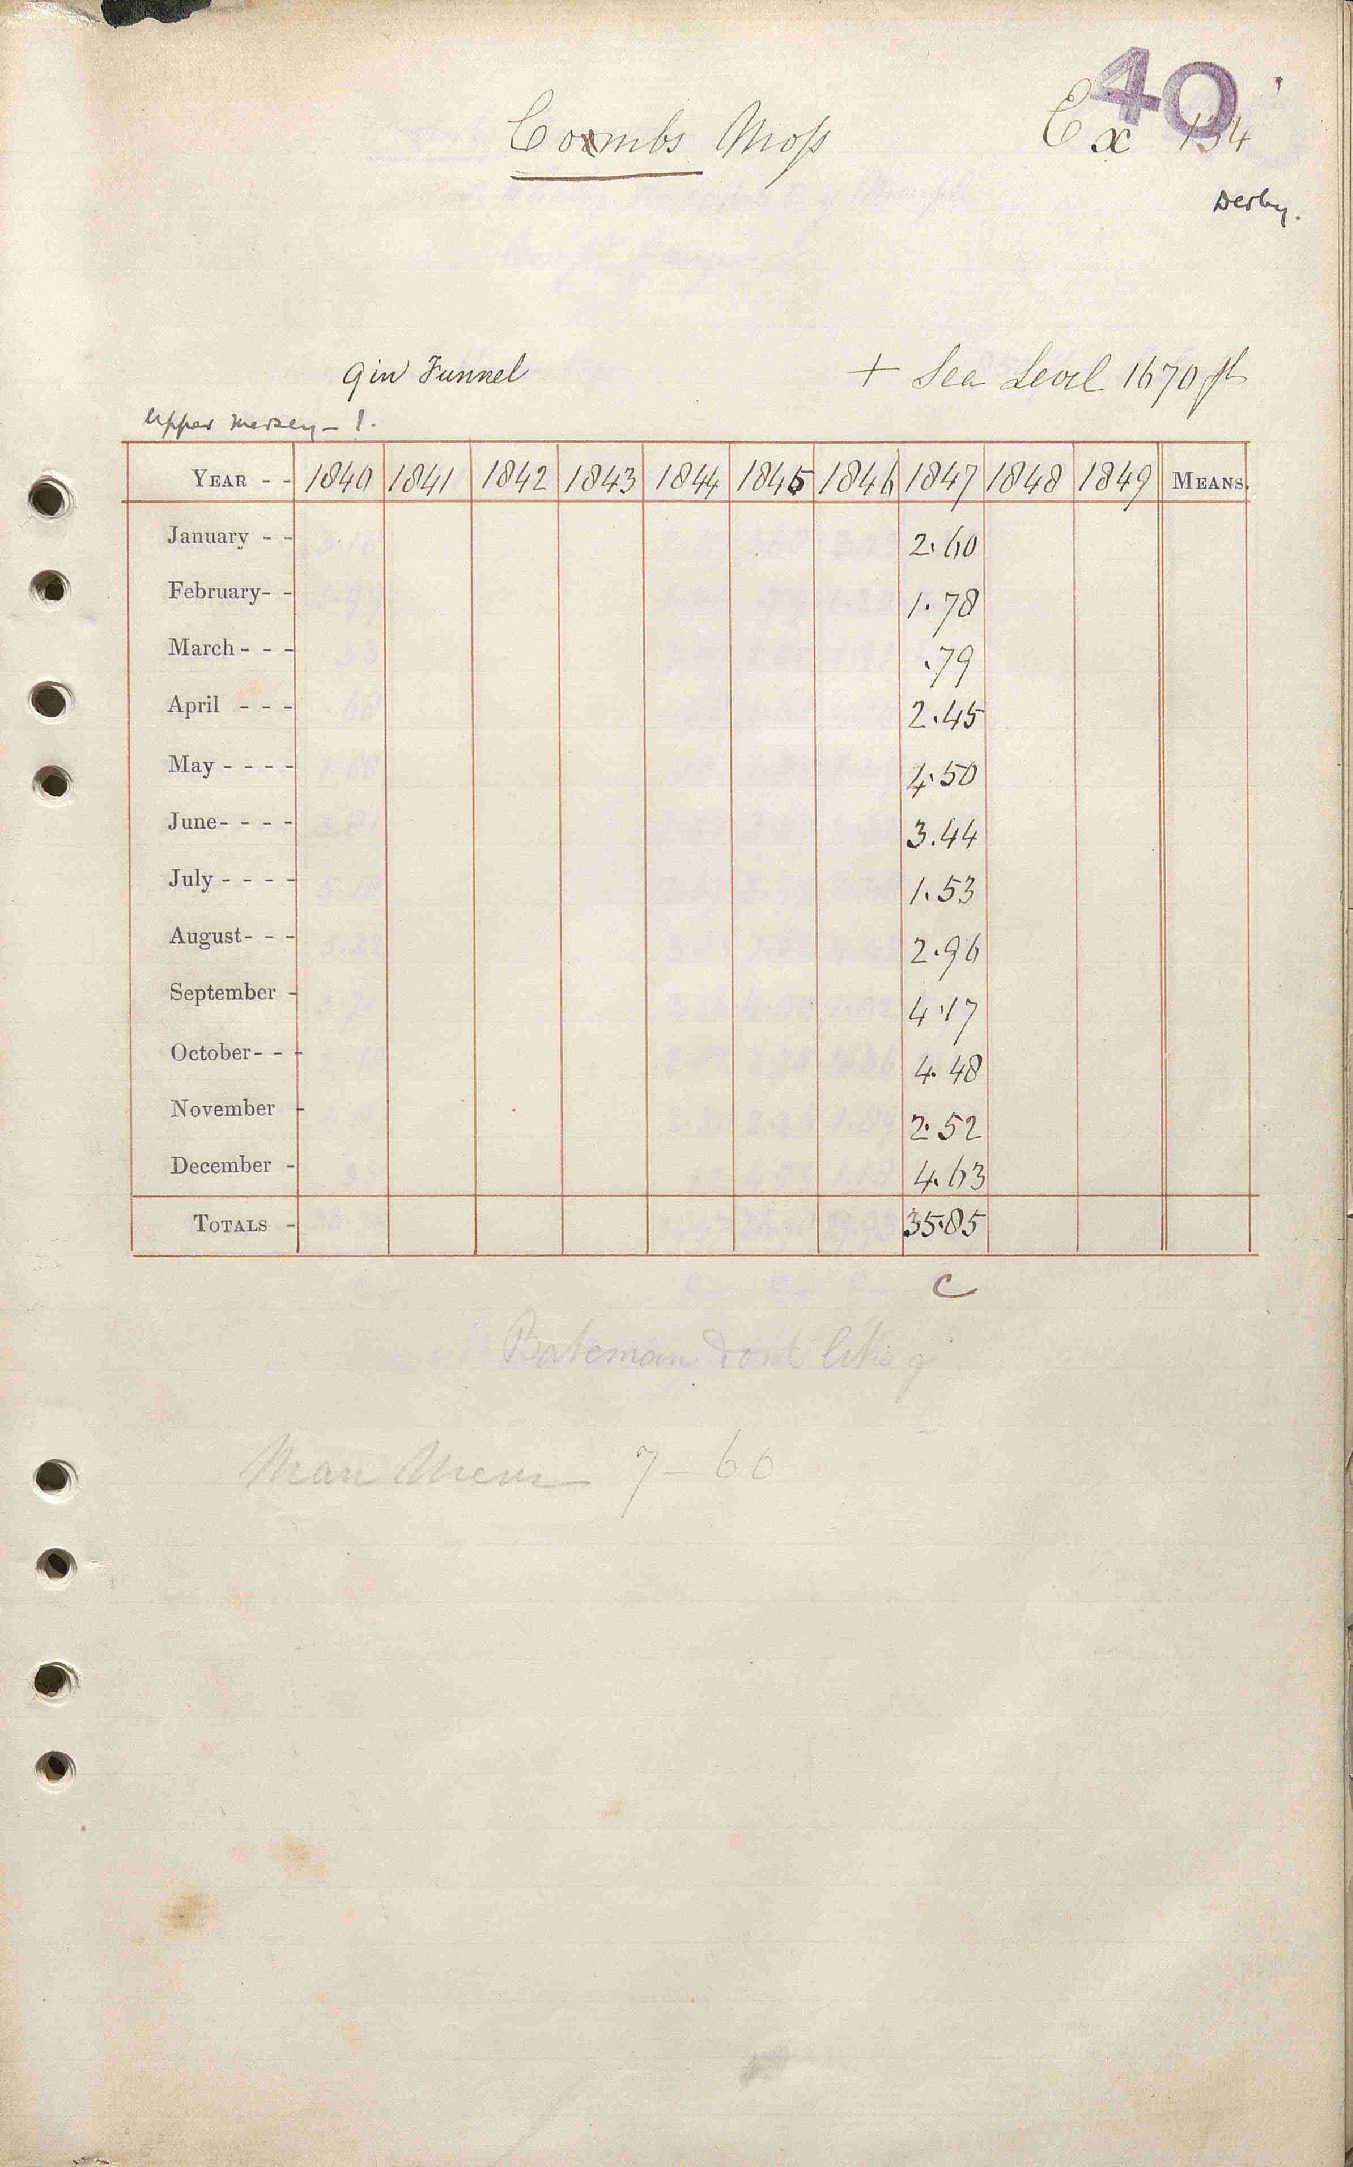 40
Coombs Moss
Ex 134
Derby.
9 in Funnel
+ Sea Level 1670 ft
Upper Mersey - 1.
YEAR - - 1840 1841 1842 1843 1844 1845 1846 1847 1848 1849 MEANS.
January - - 2.60
February - - 1.78
March - - - .79
April - - - 2.45
May - - - - 4.50
June - - - - 3.44
July - - - - 1.53
August - - - 2.96
September - 4.17
October - - - 4.48
November - 2.52
December - 4.63
TOTALS - 35.85
C
Bateman dont like
7 - 60